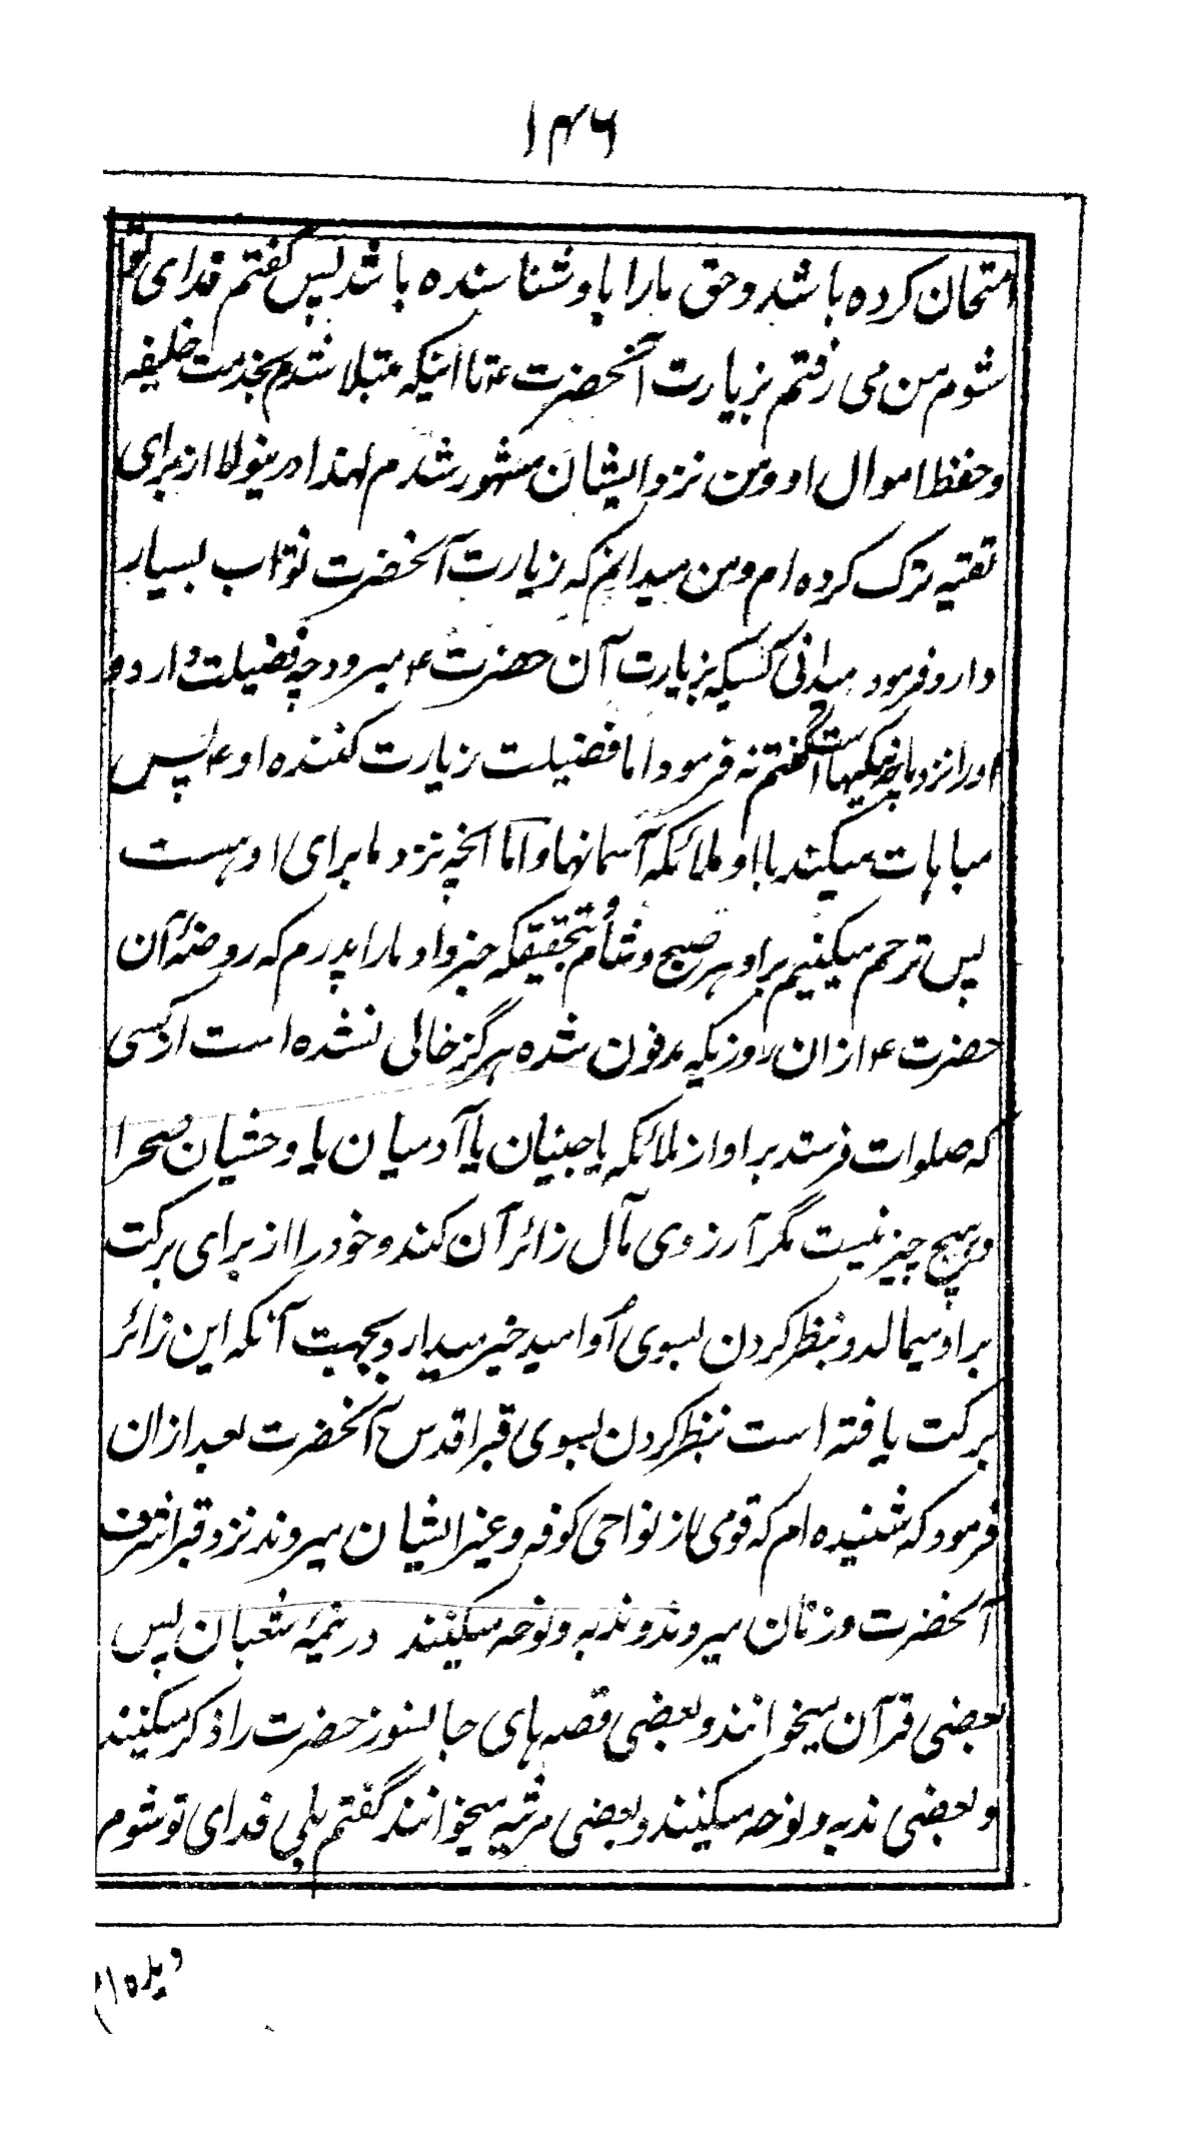 ۱۴۶
امتحان کرده باشد و حق مارا باو شناسنده باشد پس گفتم فدای تو
شوم من می رفتم بزیارت آنحضرت ۴ تا اینکه مبتلا شدم بخدمت خلیفه
و حفظ اموال او و من نزد ایشان مشهور شدم لهذا درینولا از برای
تقیه ترک کرده ام و من میدانم که زیارت آنحضرت ثواب بسیار
دارد فرمود میدانی کسیکه بزیارت آن حضرت ۴ میرود چه فضیلت دارد و
اورا نزد ما چه نیکیهاست گفتم نه فرمود اما فضیلت زیارت کننده او ۴ پس
مباهات میکنند با او ملائکه آسمانها و اما آنچه نزد ما برای او هست
پس ترحم میکنیم بر او هر صبح و شام و بتحقیقکه خبر داد مارا پدرم که روضۀ آن
حضرت ۴ از ان روزیکه مدفون شده هرگز خالی نشده است از کسی
که صلوات فرستد بر او از ملائکه یا جنیان یا آدمیان یا وحشیان صحرا
و هیچ چیز نیست مگر آرزوی مآل زائر آن کند و خود را از برای برکت
بر او میمالد و بنظر کردن بسوی او امید خیر میدارد بجهت آنکه این زائر
برکت یافته است بنظر کردن بسوی قبر اقدس آنحضرت بعد ازان
فرمود که شنیده ام که قومی از نواحی کوفه و غیر ایشان میروند نزد قبر اشرف
آنحضرت و زنان میروند و ندبه و نوحه میکنند در نیمۀ شعبان پس
بعضی قرآن میخوانند و بعضی قصه های جانسوز حضرت را ذکر میکنند
و بعضی ندبه و نوحه میکنند و بعضی مرثیه میخوانند گفتم بلی فدای تو شوم
دیده ام